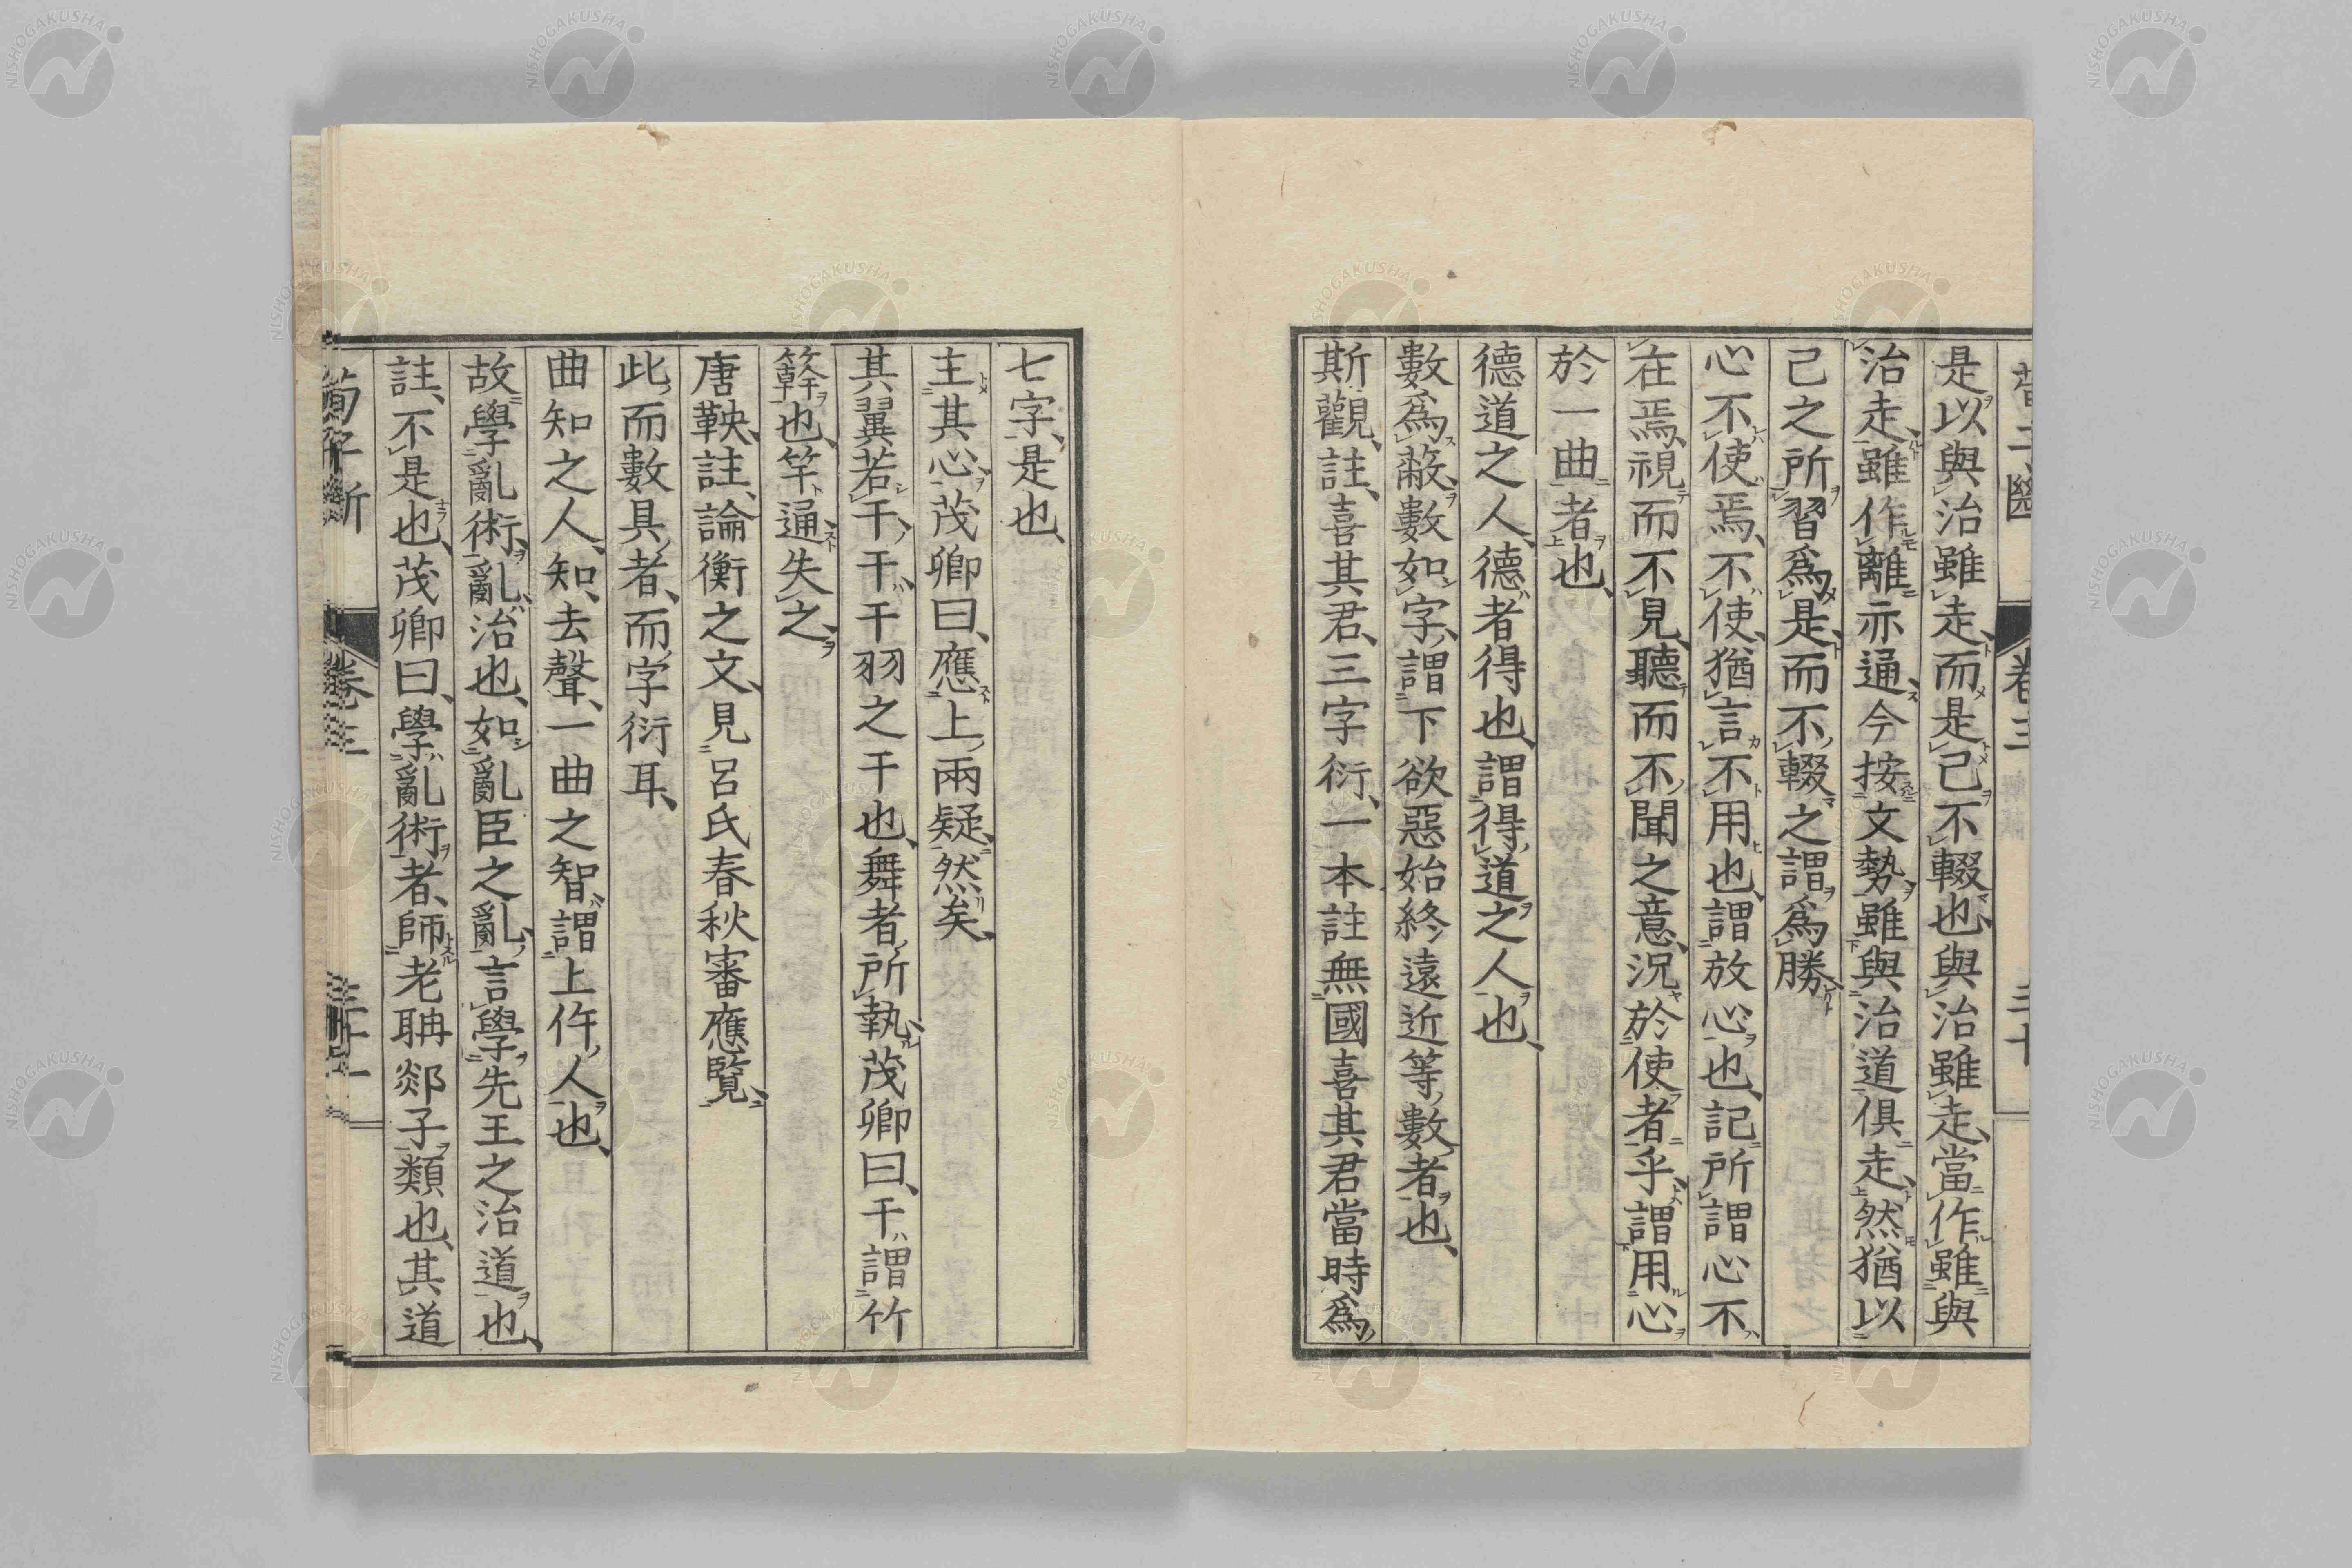 是以與治雖走、而是己不輟也、與治雖走、當作雖與
治走、雖作離亦通、今按文勢、雖與治道俱走、然猶以
己之所習爲是、而不輟之謂爲勝
心不使焉、不使、猶言不用也、謂放心也、記所謂心不
在焉、視而不見、聽而不聞之意、況於使者乎、謂用心
於一曲者也、
德道之人、德者得也、謂得道之人也、
數爲蔽、數如字、謂下欲惡始終遠近等數者也、
斯觀、註、喜其君、三字衍、一本註無國喜其君當時爲
七字、是也、
主其心、茂卿曰、應上兩疑、然矣、
其翼若干、干、干羽之干也、舞者所執、茂卿曰、干謂竹
簳也、竿通失之、
唐鞅、註、論衡之文、見呂氏春秋審應覽、
此而數具者、而字衍耳、
曲知之人、知、去聲、一曲之智、謂上件人也、
故學亂術、亂、治也、如亂臣之亂、言學先王之治道也、
註、不是也、茂卿曰、學亂術者、師老聃郯子類也、其道
卷三
NISHOGAKUSHA